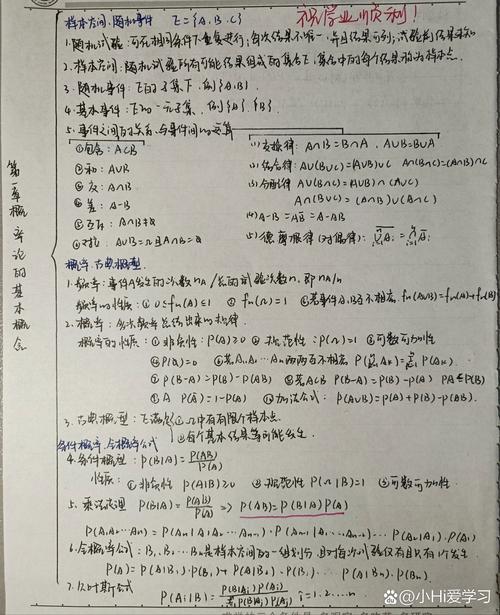 样本空间、随机事件 E={A.B.C} 祝学业顺利!
1.随机试验:可在相同条件下重复进行;每次结果不唯一,并且结果可列;试验前结果未知
2.样本空间:随机试验所有可能结果组成的集合E,集合中的每个结果称为样本点.
3.随机事件:E的子集F.例{A.B}.
4.基本事件:E的一元子集.例{A}.{B}.
5.事件之间的关系与事件间的运算
①包含:A⊂B
②和:A∪B
③交:A∩B
④差:A-B
⑤互斥:A∩B=∅
⑥对立:A∪B=Ω且A∩B=∅
(1)交换律:A∩B=B∩A.A∪B=B∪A
(2)结合律:A∪(B∪C)=(A∪B)∪C A∩(B∩C)=(A∩B)∩C
(3)分配律 A∪(B∩C)=(A∪B)∩(A∪C)
A∩(B∪C)=(A∩B)∪(A∩C)
(4)A-B=AB̄=A-AB
(5)德摩根律(对偶律):
第一章概率论的基本概念
概率、古典概型.
1.频率:事件A发生的次数nA/总的试验次数n,即nA/n
频率的性质:①0≤fn(A)≤1 ②fn(Ω)=1 ③若事件A、B互不相容.fn(A∪B)=fn(A)+fn(B)
2.概率:多次频率总结出来的规律.
概率的性质:①非负性:P(A)≥0 ②规范性:P(Ω)=1 ③可数可加性
④P(∅)=0 ⑤若A1.A2…An两两互不相容
⑦P(B-A)=P(B)-P(AB) ⑧若A⊂B P(B-A)=P(B)-P(A) P(A)≤P(B)
⑨A P(Ā)=1-P(A) ⑩加法公式:P(A∪B)=P(A)+P(B)-P(AB).
3.古典概型:E满足①Ω中有有限个样本点.
②每个基本结果等可能发生.
条件概率、全概率公式
4.条件概型:P(B|A)=P(AB)/P(A)
性质:①非负性 P(A|B)≥0 ②规范性P(Ω|B)=1 ③可数可加性
5.乘法定理 P(B|A)=P(AB)/P(A) => P(AB)=P(B|A)P(A)
P(A1A2…An)=P(An|A1A2…An-1)·P(An-1|A1…An-2)…P(A2|A1).P(A1)
6.全概率公式:B1.B2…Bn是样本空间的一组划分,且对每次试验仅有且只有1个发生.
P(A)=P(A|B1).P(B1)+P(A|B2).P(B2)…P(A|Bn).P(Bn).
7.贝叶斯公式
i=1.2…n
@小Hi爱学习